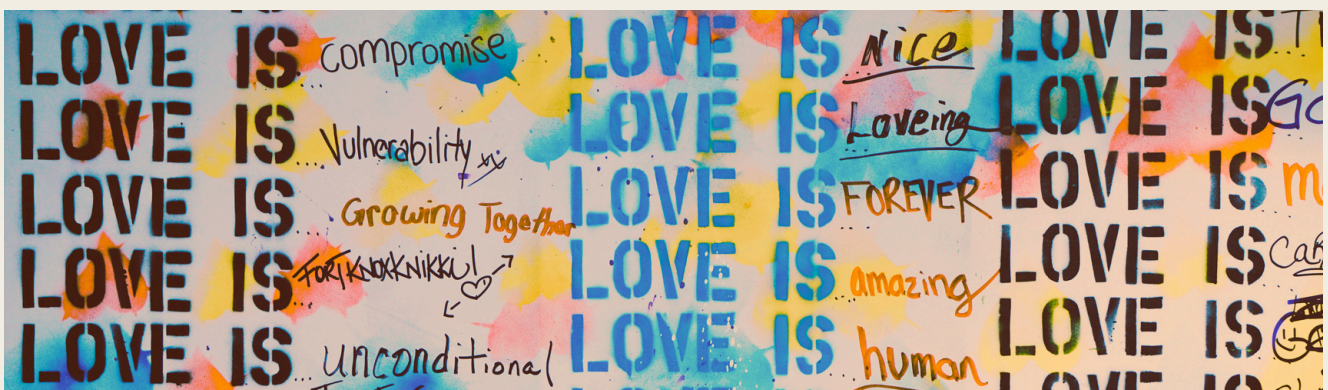 LOVE IS... compromise
LOVE IS.... Vulnerability
LOVE IS... Growing Together
LOVE IS... FORTKNOXKNIKKU!
LOVE IS... unconditional
LOVE IS... Nice
LOVE IS... Loveing
LOVE IS... FOREVER
LOVE IS... amazing
LOVE IS... human
LOVE IS...
LOVE IS
LOVE IS...
LOVE IS...
LOVE IS...